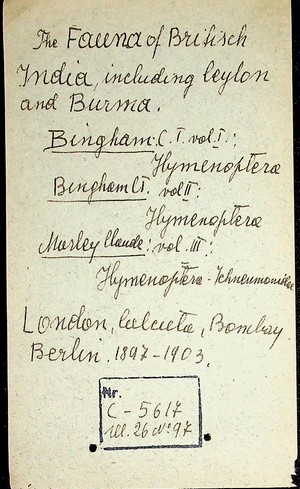 The Fauna of Britisch
India, including Ceylon
and Burma.
Bingham: C. T. vol. I.:
Hymenoptera
Bingham C.T. vol II:
Hymenoptera
Morley Claude: vol. III:
Hymenoptera - Ichneumonidae
London, Calcuta, Bombay
Berlin. 1897-1903.
Nr.
C-5617
Ul. 26 Nº 97